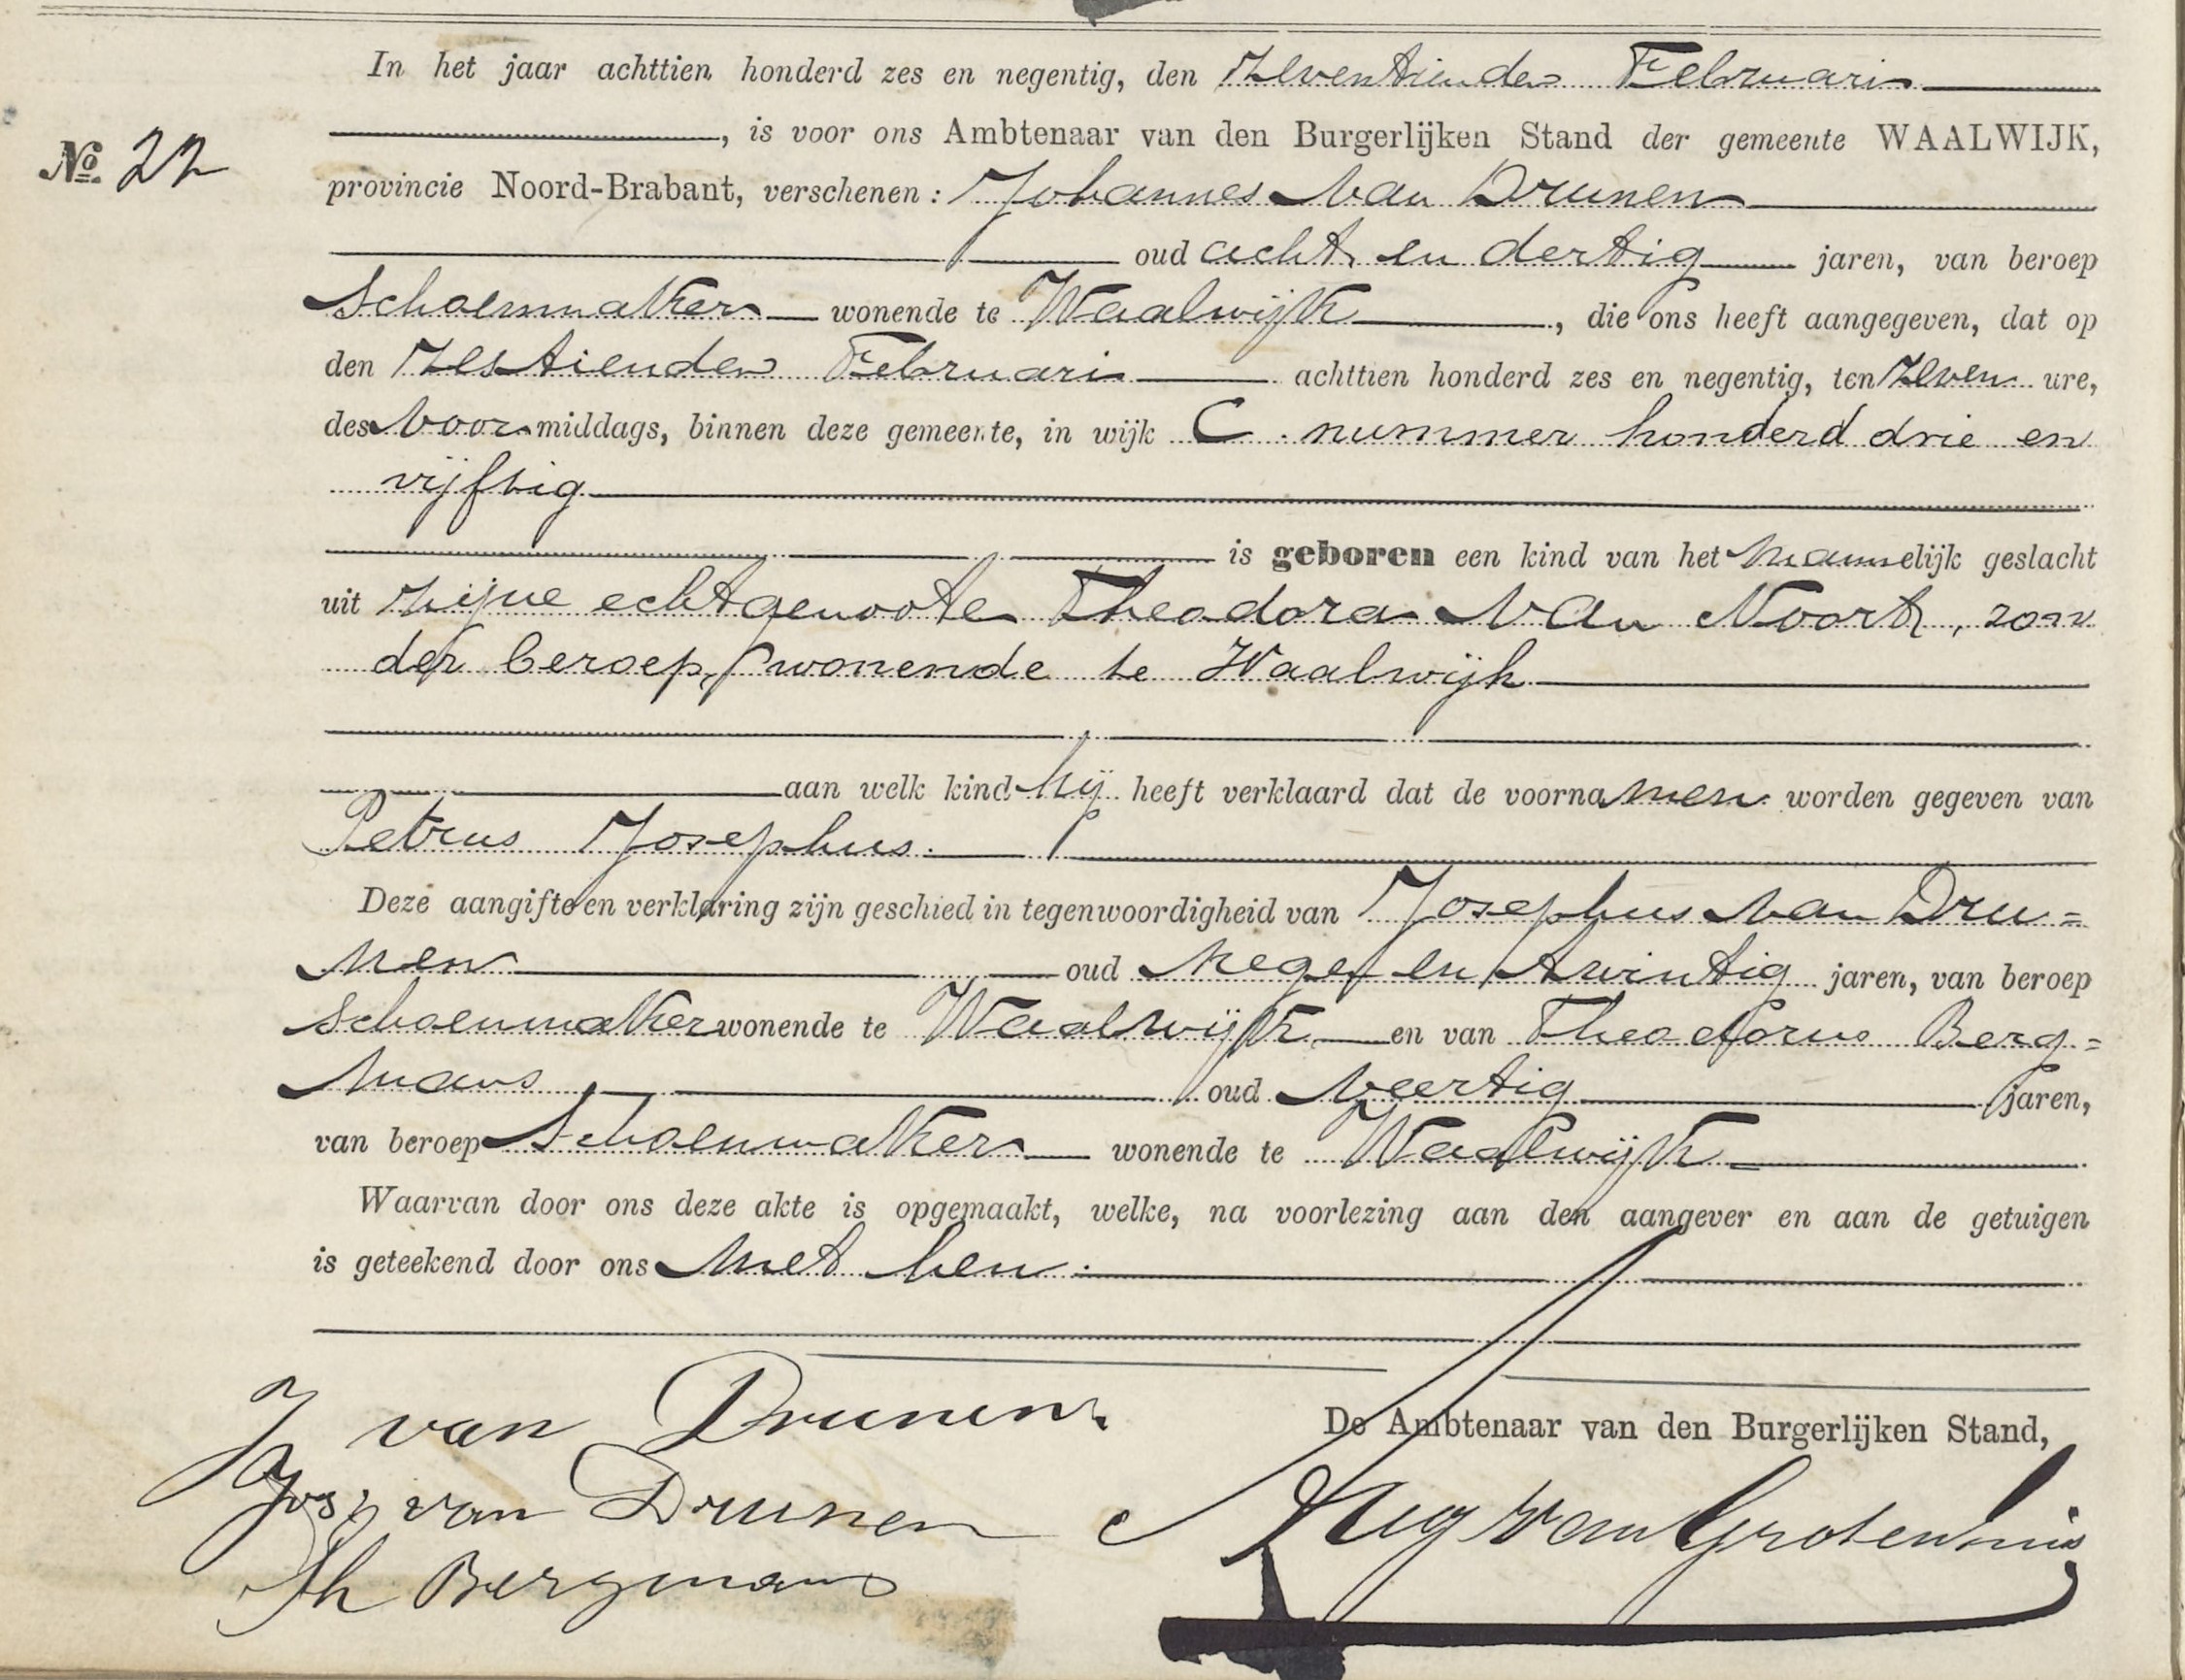 In het jaar achttien honderd zes en negentig, den zeventienden Februari
, is voor ons Ambtenaar van den Burgerlijken Stand der gemeente WAALWIJK,
No. 22
provincie Noord-Brabant, verschenen: Johannes van Drunen
oud acht en dertig jaren, van beroep
schoenmaker wonende te Waalwijk, die ons heeft aangegeven, dat op
den zestienden Februari achttien honderd zes en negentig, ten zeven ure,
des voormiddags, binnen deze gemeente, in wijk C nummer honderd drie en
vijftig
is geboren een kind van het mannelijk geslacht
uit zijne echtgenoote Theodora van Noort, zon
der beroep, wonende te Waalwijk
aan welk kind hij heeft verklaard dat de voornamen worden gegeven van
Petrus Josephus.
Deze aangifte en verklaring zijn geschied in tegenwoordigheid van Josephus van Dru=
nen oud negen en twintig jaren, van beroep
schoenmaker wonende te Waalwijk en van Theodorus Berg=
mans oud veertig jaren,
van beroep schoenmaker wonende te Waalwijk
Waarvan door ons deze akte is opgemaakt, welke, na voorlezing aan den aangever en aan de getuigen
is geteekend door ons met hen.
J van Drunen
De Ambtenaar van den Burgerlijken Stand,
Jos van Drunen
van Grotenhuis
Th Bergmans